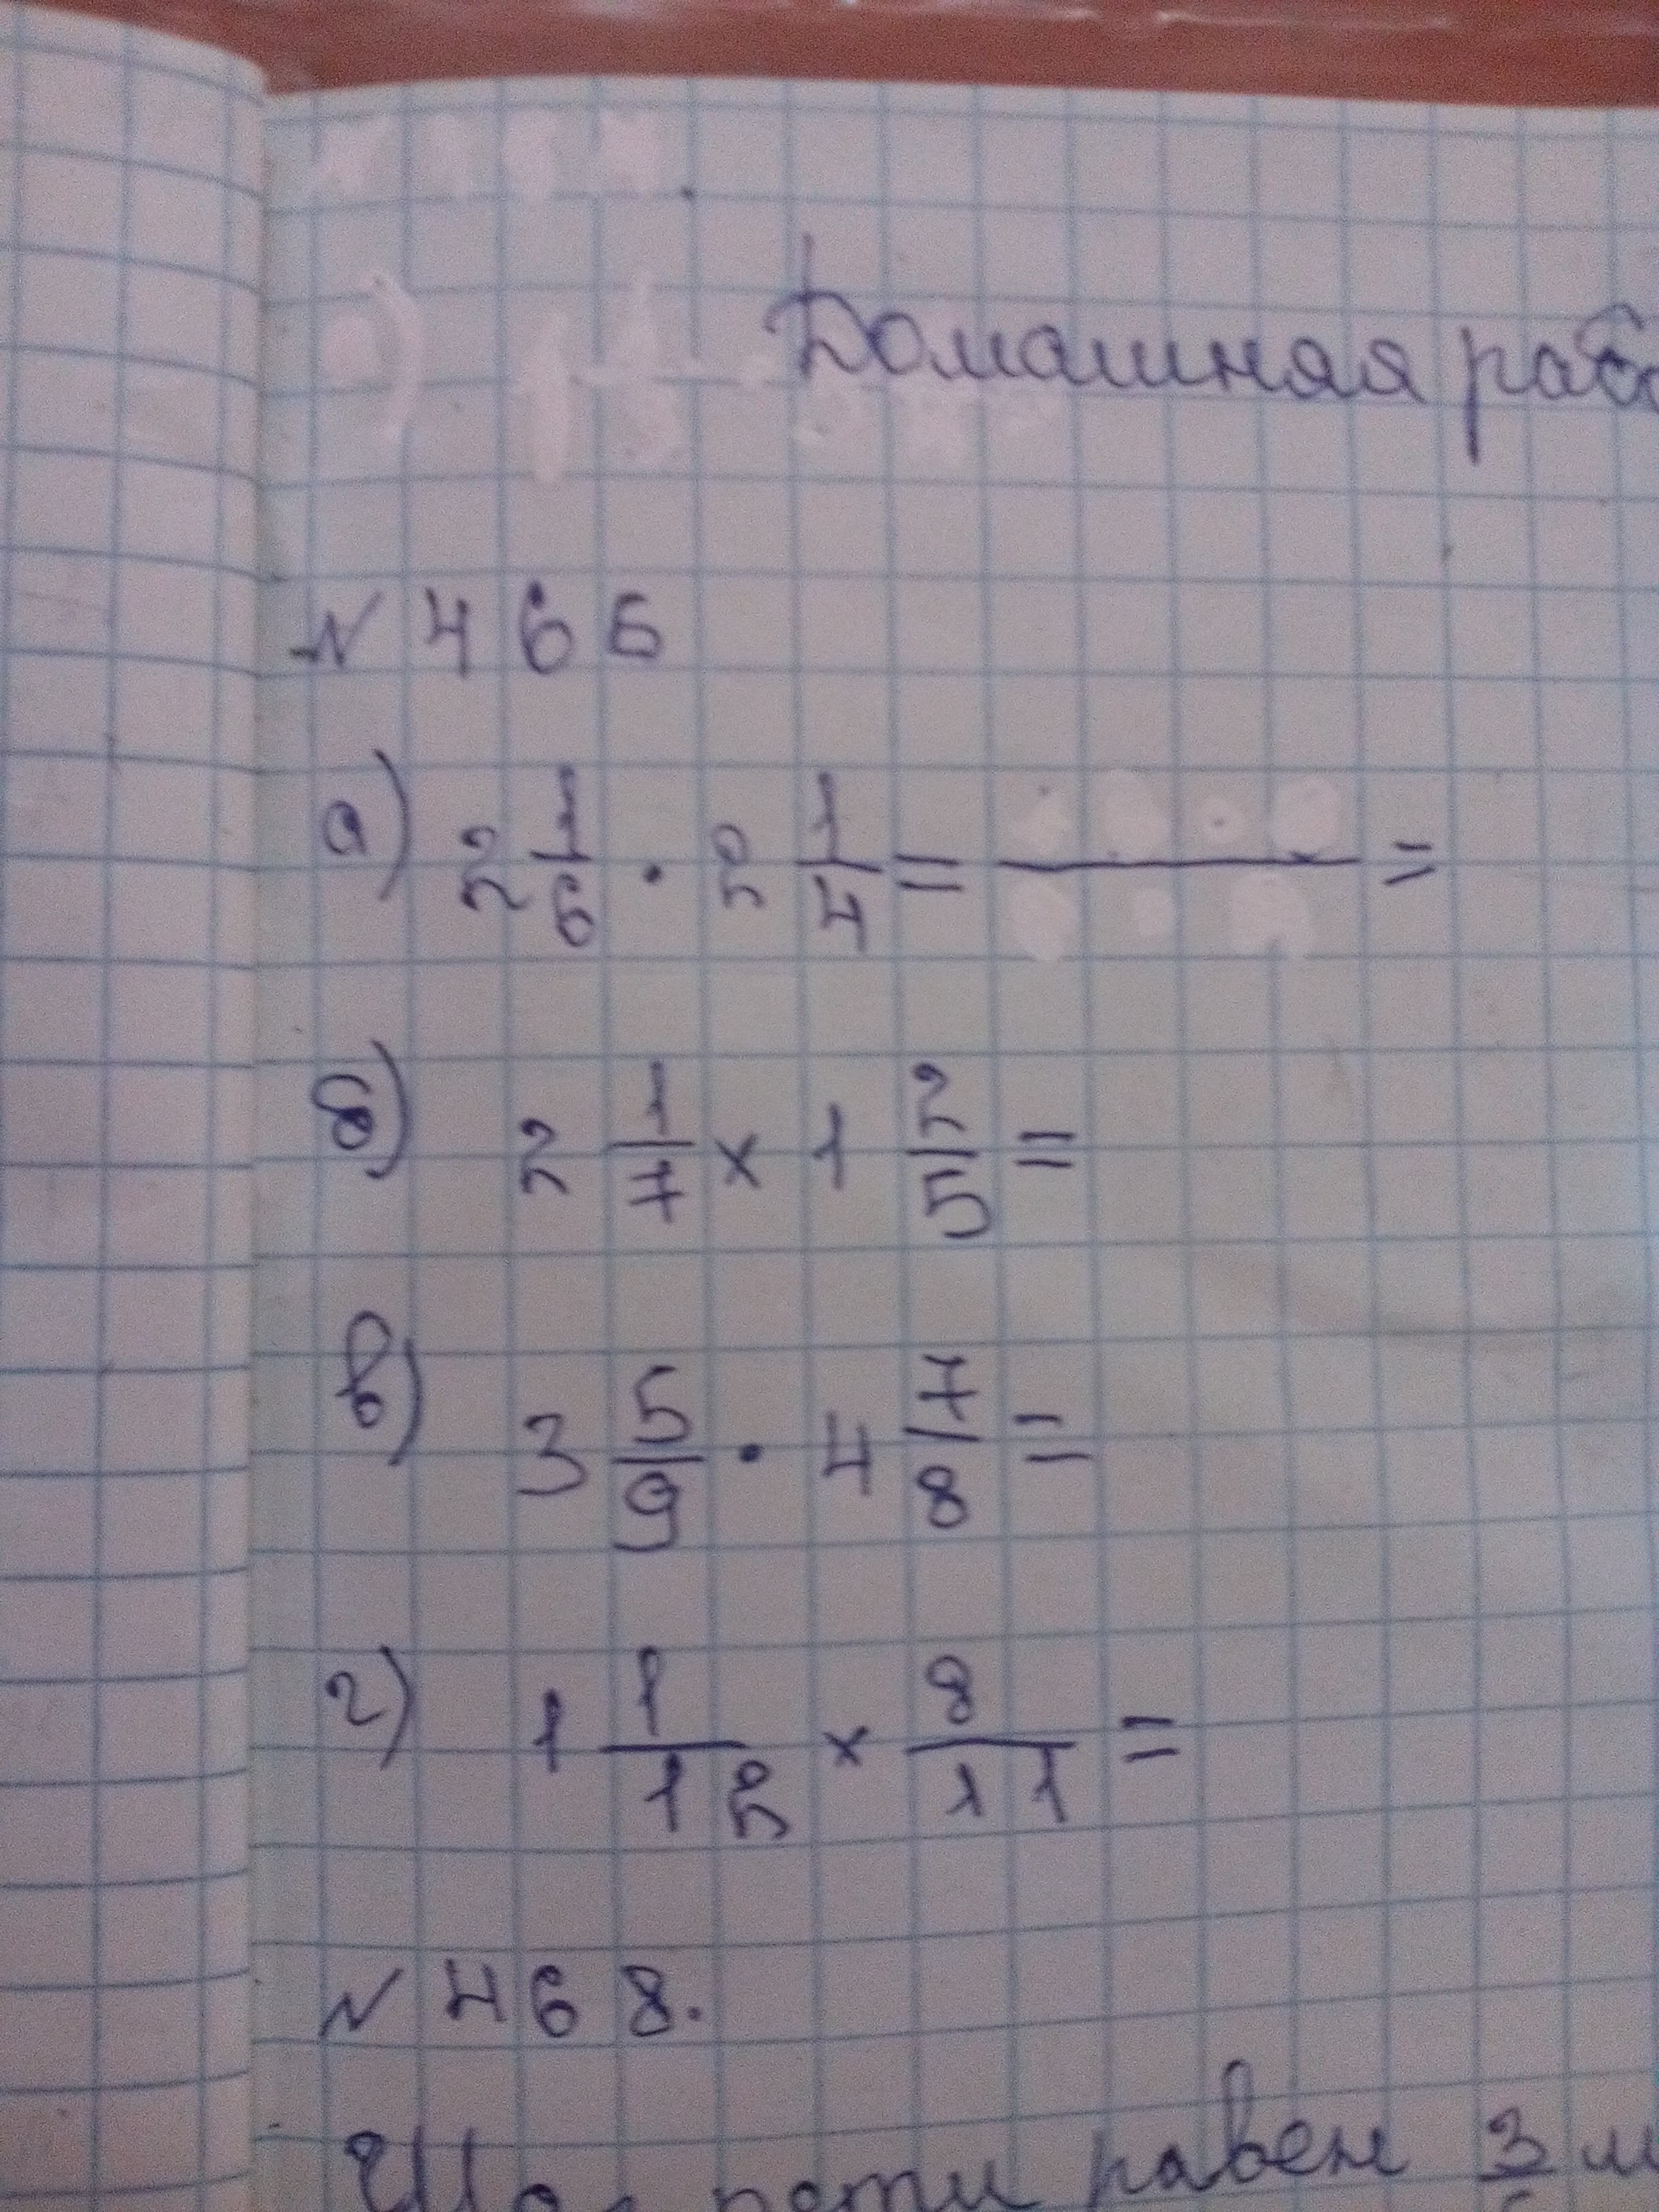 Домашняя
№ 466
а) 2 1/6 · 2 1/4 = ——— =
б) 2 1/7 × 1 2/5 =
в) 3 5/9 · 4 7/8 =
г) 1 1/12 × 8/11 =
№ 468.
равен 3